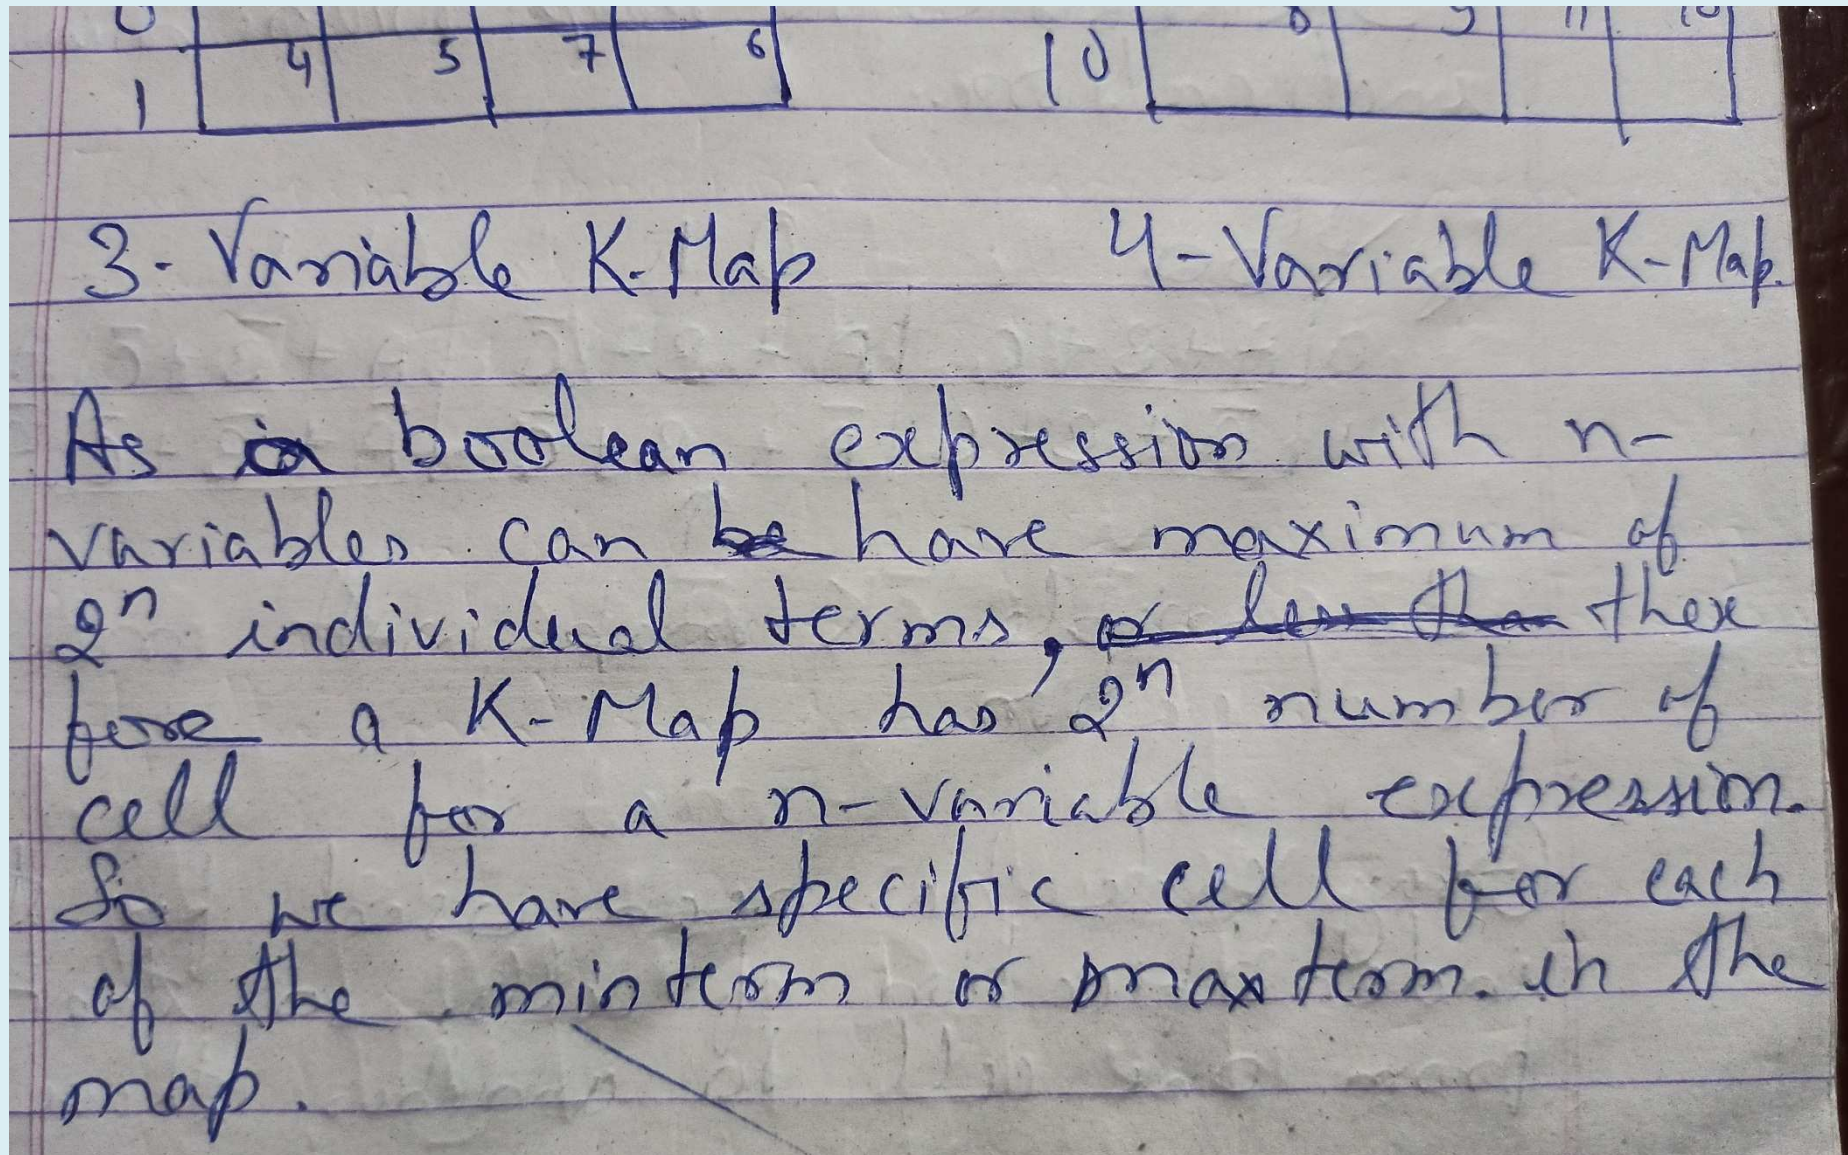 0 8 9 11 10
1 4 5 7 6 10
3- Variable K-Map 4-Variable K-Map.
As a boolean expression with n-
variables can be have maximum of
2ⁿ individual terms, or less than there
fore a K-Map has 2ⁿ number of
cell for a n-variable expression.
So we have specific cell for each
of the minterm or maxterm. in the
map.